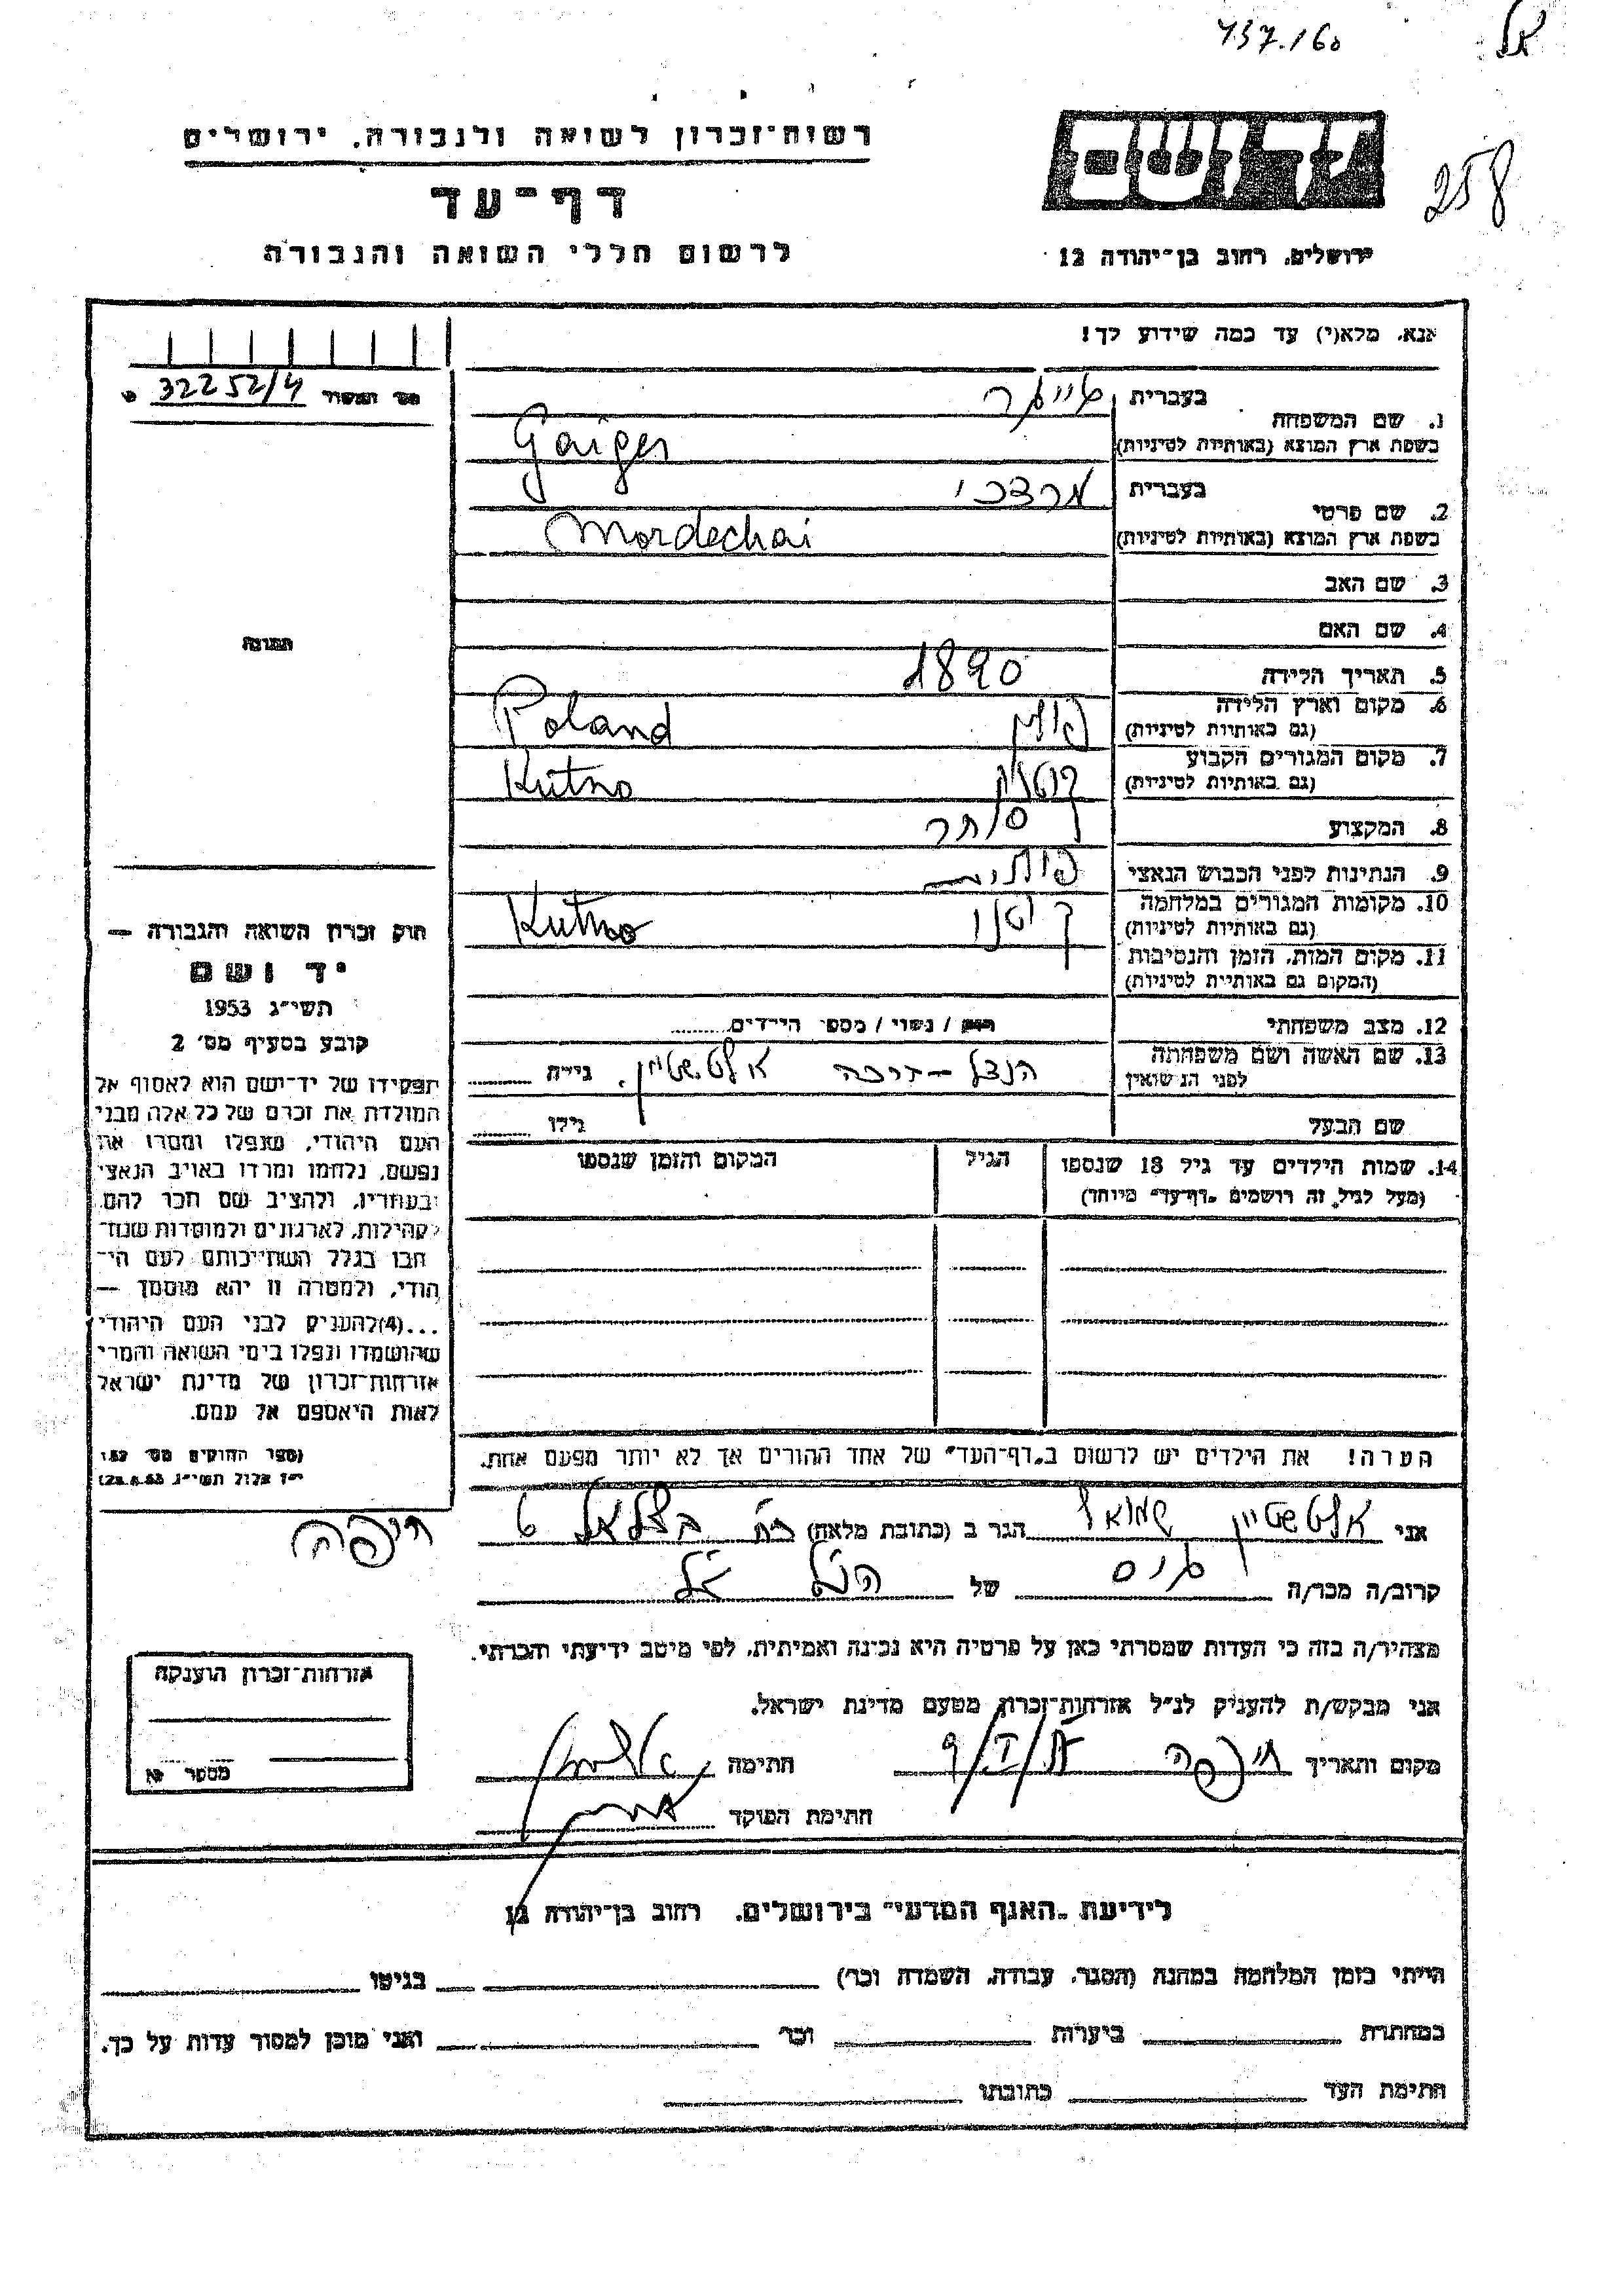 437.160
258
רשות-זכרון לשואה ולגבורה, ירושלים
דף-עד
לרשום חללי השואה והגבורה
יד ושם
ירושלים, רחוב בן-יהודה 12
אנא, מלא(י) עד כמה שידוע לך!
32252/4
1. שם המשפחה
בעברית גייגר
בשפת ארץ המוצא (באותיות לטיניות) Gaiger
2. שם פרטי
בעברית מרדכי
בשפת ארץ המוצא (באותיות לטיניות) Mordechai
3. שם האב
4. שם האם
5. תאריך הלידה 1890
6. מקום וארץ הלידה
(גם באותיות לטיניות) פולין Poland
7. מקום המגורים הקבוע
(גם באותיות לטיניות) קוטנו Kutno
8. המקצוע סוחר
9. הנתינות לפני הכבוש הנאצי פולנית
10. מקומות המגורים במלחמה
(גם באותיות לטיניות) קוטנו Kutno
11. מקום המות, הזמן והנסיבות
(המקום גם באותיות לטיניות)
12. מצב משפחתי רווק / נשוי / מספר הילדים
13. שם האשה ושם משפחתה
לפני הנשואין אלטשטיין גילה
שם הבעל גילו
14. שמות הילדים עד גיל 18 שנספו
(מעל לגיל זה רושמים "דף-עד" מיוחד)
הגיל
המקום והזמן שנספו
הערה! את הילדים יש לרשום ב"דף-העד" של אחד ההורים אך לא יותר מפעם אחת.
תמונה
חוק זכרון השואה והגבורה —
יד ושם
תשי"ג 1953
קובע בסעיף מס' 2
תפקידו של יד-ושם הוא לאסוף אל
המולדת את זכרם של כל אלה מבני
העם היהודי, שנפלו ומסרו את
נפשם, נלחמו ומרדו באויב הנאצי
ובעוזריו, ולהציב שם וזכר להם,
לקהילות, לארגונים ולמוסדות שנח-
רבו בגלל השתייכותם לעם הי-
הודי, ולמטרה זו יהא מוסמך —
...(4)להעניק לבני העם היהודי
שהושמדו ונפלו בימי השואה והמרי
אזרחות-זכרון של מדינת ישראל
לאות היאספם אל עמם.
אני אלטשטיין שמואל הגר ב (כתובת מלאה) רח' בצלאל 6
חיפה
קרוב/ה מכר/ה גיס של הנ"ל
מצהיר/ה בזה כי העדות שמסרתי כאן על פרטיה היא נכונה ואמיתית, לפי מיטב ידיעתי והכרתי.
אני מבקש/ת להעניק לנ"ל אזרחות-זכרון מטעם מדינת ישראל.
מקום ותאריך חיפה חתימה
חתימת הפוקד
אזרחות-זכרון הוענקה
מספר
לידיעת "האגף המדעי" בירושלים, רחוב בן-יהודה 12
הייתי בזמן המלחמה במחנה (הסגר, עבודה, השמדה וכו') בגיטו
במחתרת ביערות וכו' ואני מוכן למסור עדות על כך.
חתימת העד כתובתו